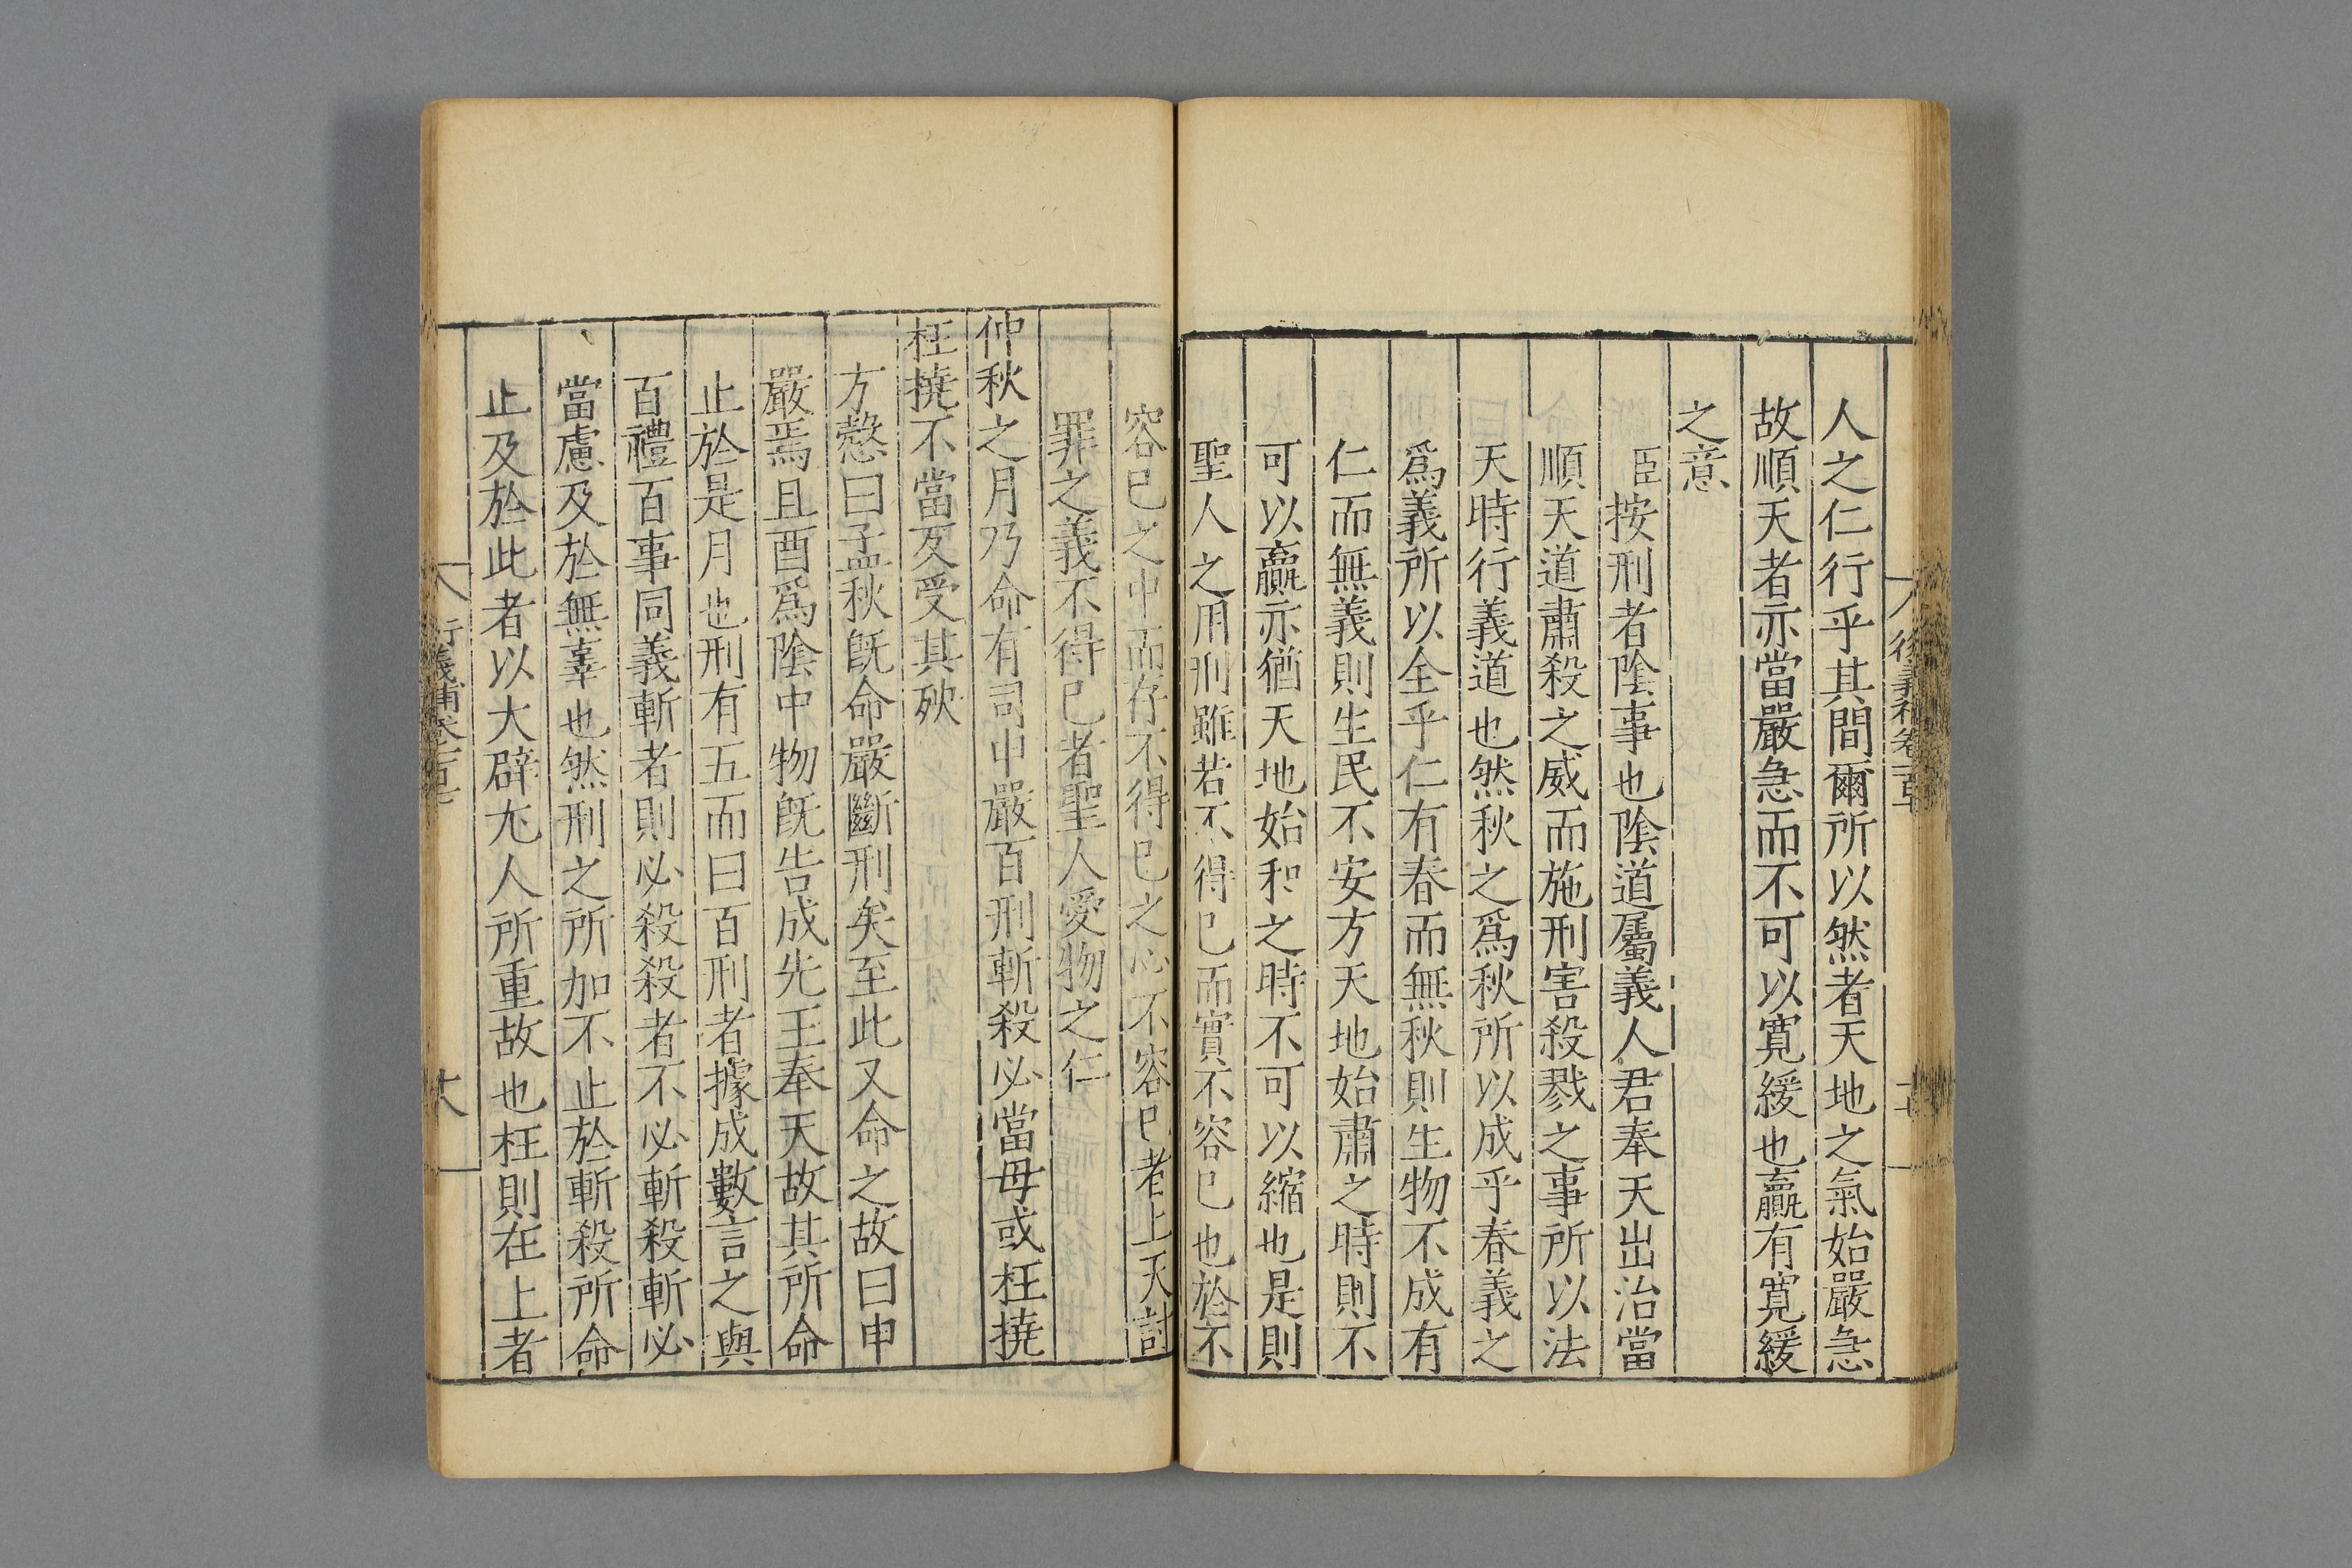 人之仁行乎其間爾所以然者天地之氣始嚴急
故順天者亦當嚴急而不可以寛緩也贏有寛緩
之意
臣按刑者陰事也陰道屬義人君奉天出治當
順天道肅殺之威而施刑害殺戮之事所以法
天時行義道也然秋之爲秋所以成乎春義之
爲義所以全乎仁有春而無秋則生物不成有
仁而無義則生民不安方天地始肅之時則不
可以贏亦猶天地始和之時不可以縮也是則
聖人之用刑雖若不得已而實不容已也於不
容已之中而存不得已之心不容已者上天討
罪之義不得已者聖人愛物之仁
仲秋之月乃命有司申嚴百刑斬殺必當毋或枉撓
枉撓不當反受其殃
方慤曰孟秋旣命嚴斷刑矣至此又命之故曰申
嚴焉且酉爲陰中物旣告成先王奉天故其所命
止於是月也刑有五而曰百刑者據成數言之與
百禮百事同義斬者則必殺殺者不必斬殺斬必
當慮及於無辜也然刑之所加不止於斬殺所命
止及於此者以大辟尤人所重故也枉則在上者